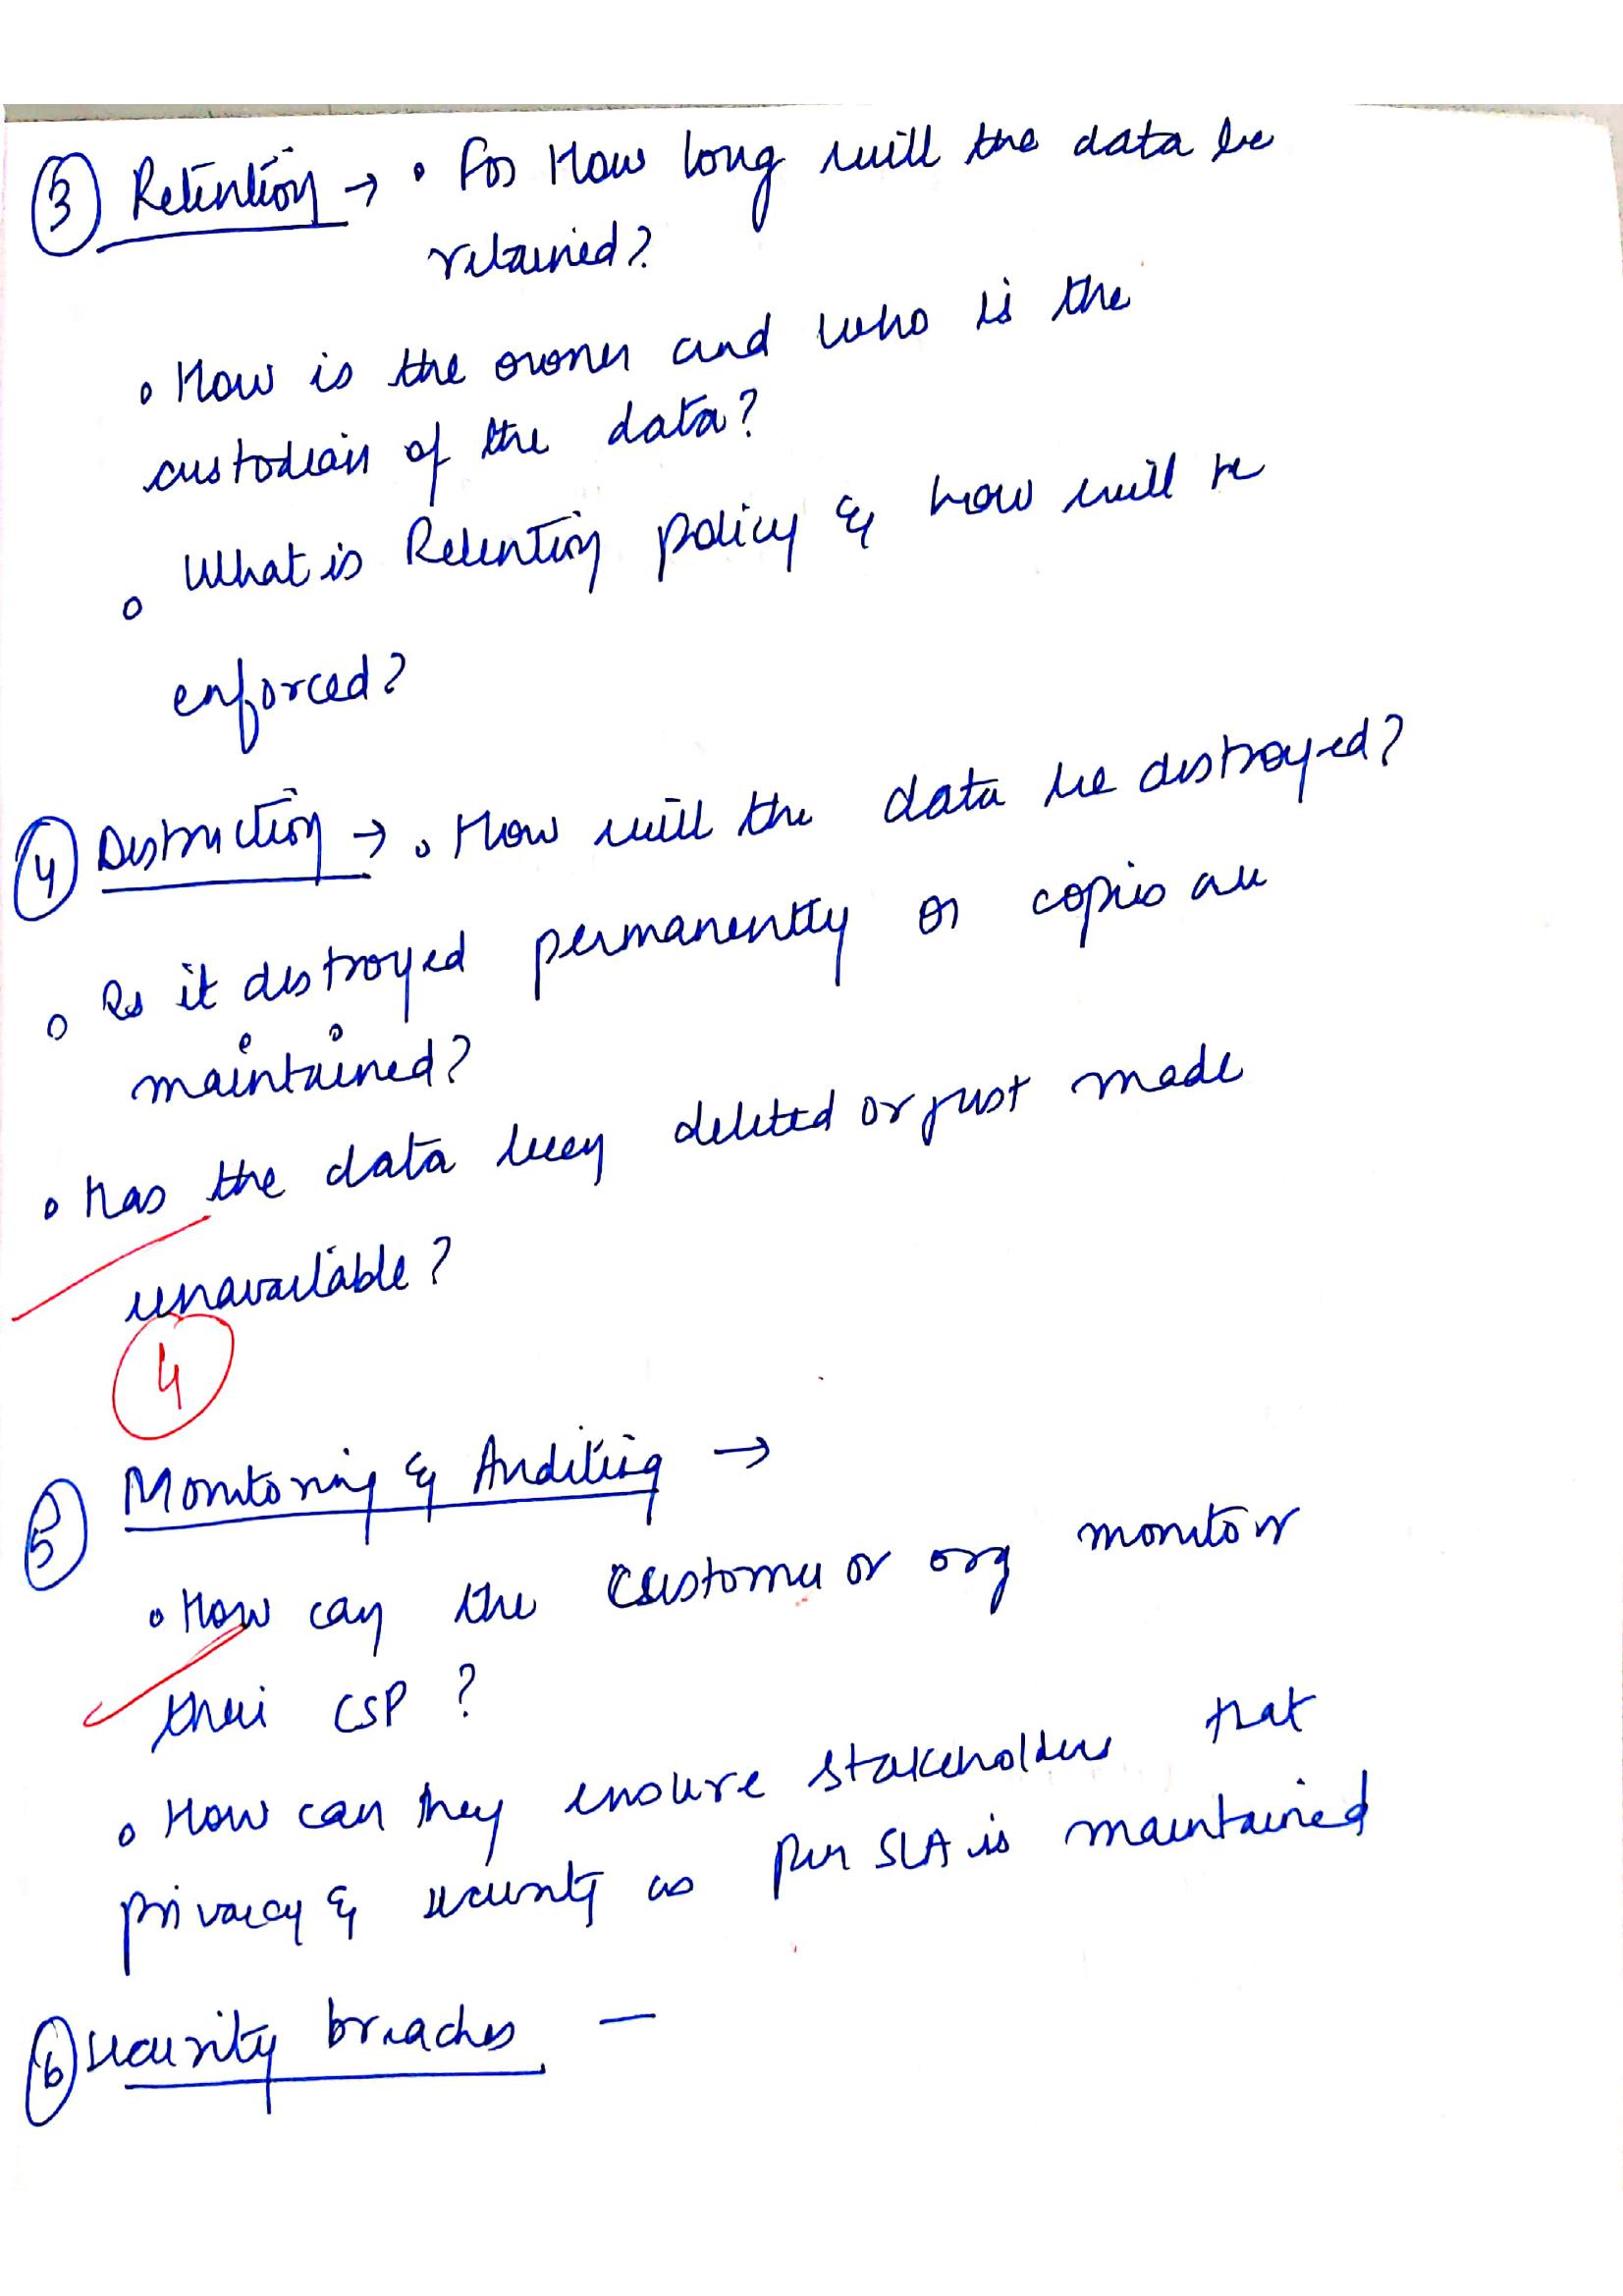 ③ Retention → • For How long will the data be
retained?
• How is the owner and who is the
custodian of the data?
• What is Retention policy & how will be
enforced?
④ Destruction → • How will the data be destroyed?
• Is it destroyed permanently or copies are
maintained?
• Has the data been deleted or just made
unavailable?
4
⑤ Monitoring & Auditing →
• How can the customer or org monitor
their CSP?
• How can they ensure stakeholders that
privacy & security as per SLA is maintained
⑥ Security breaches —